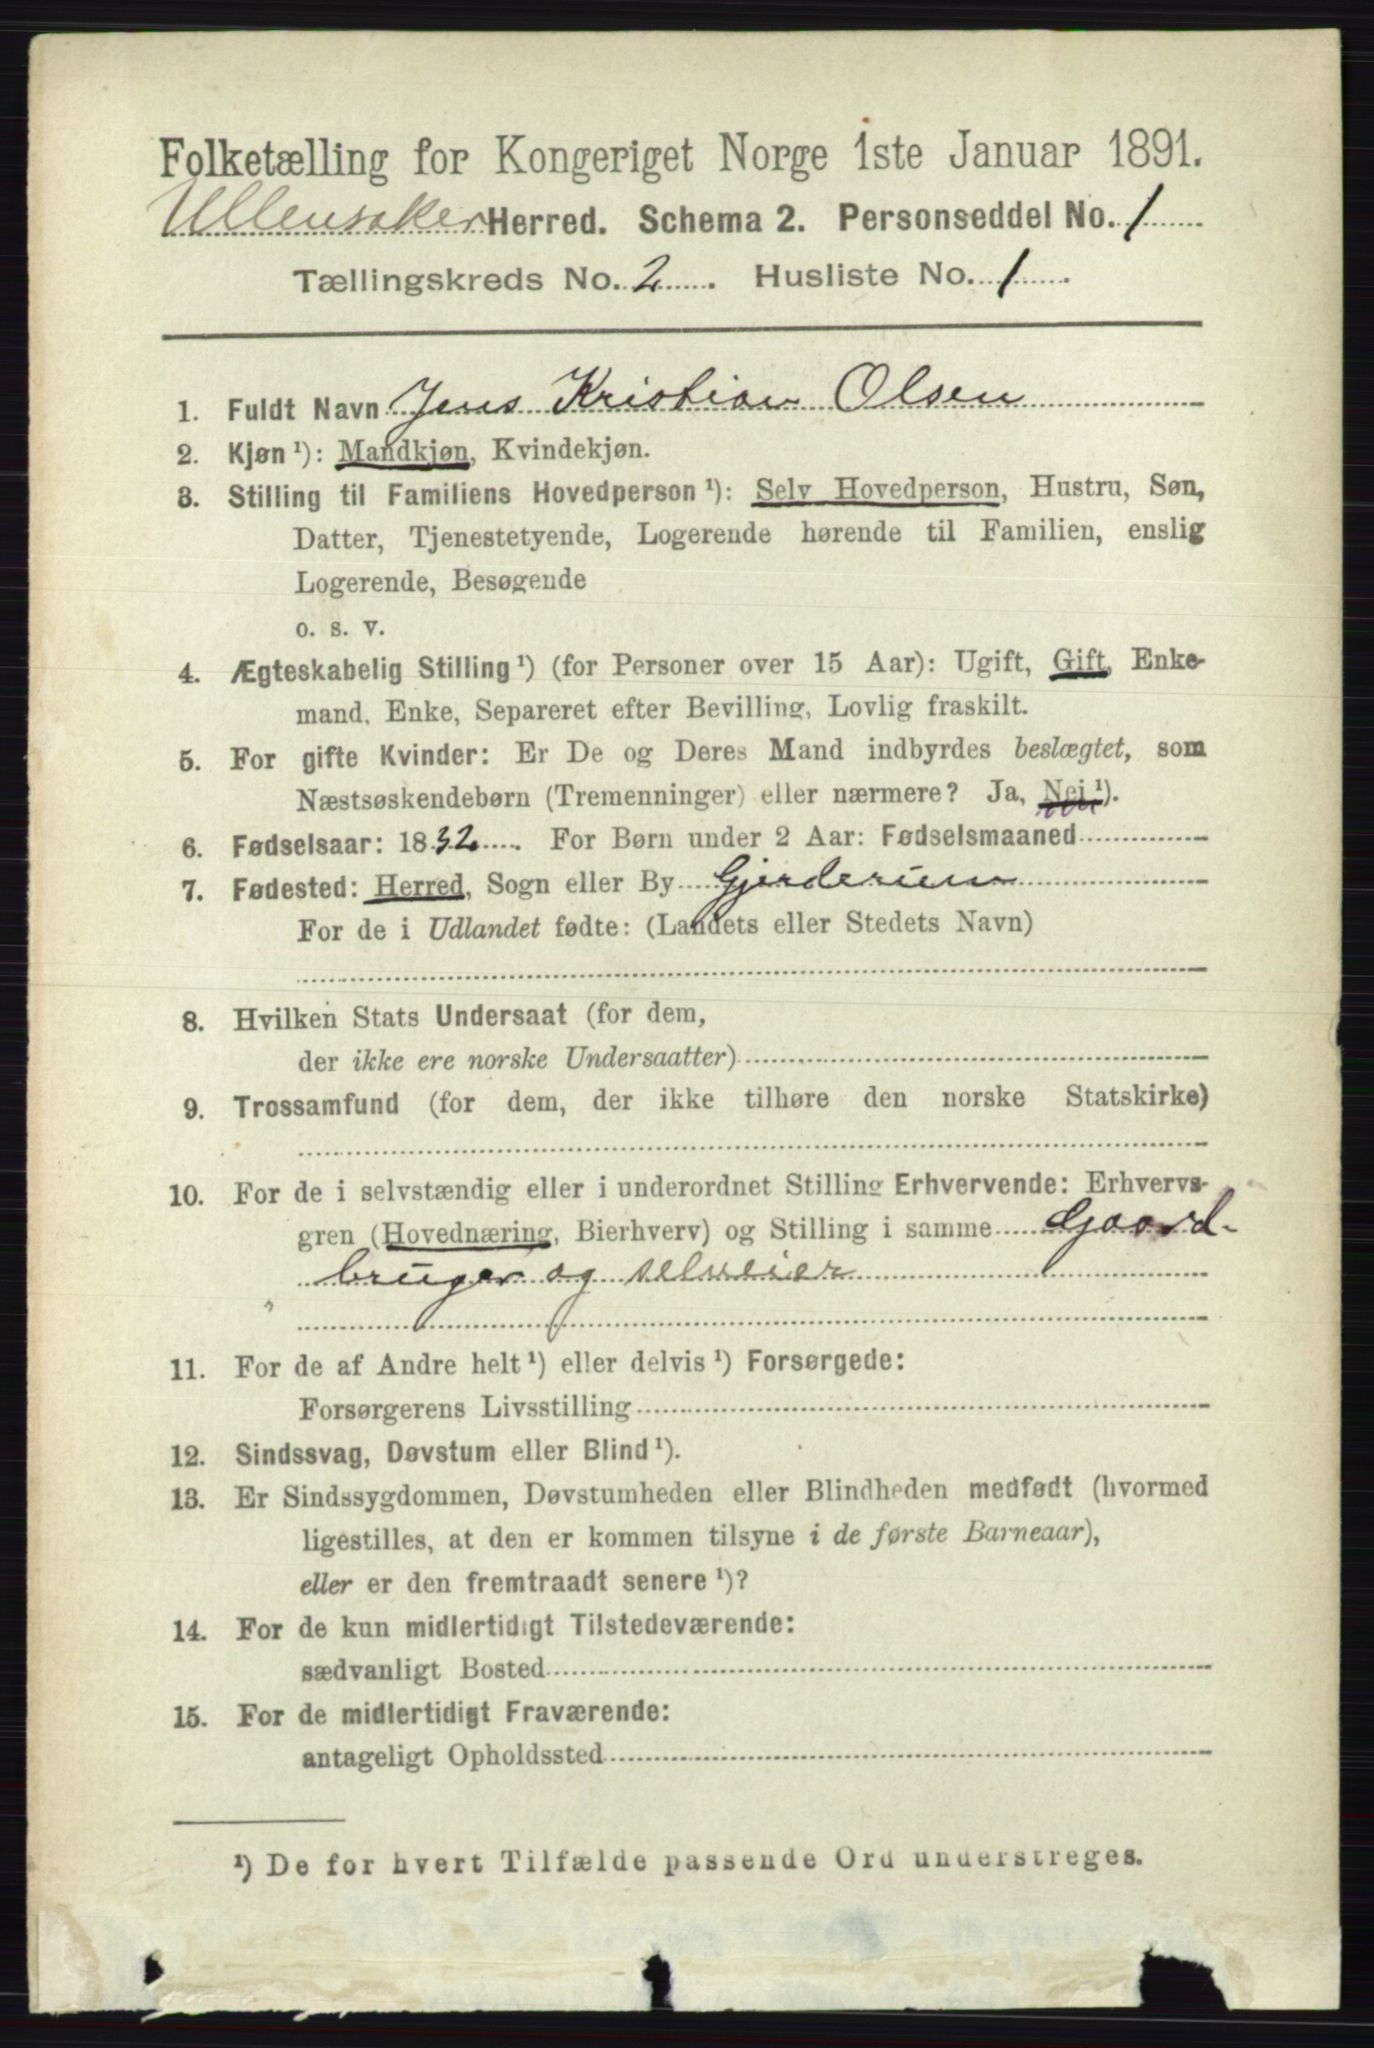 Folketælling for Kongeriget Norge 1ste Januar 1891.
Ullensaker Herred. Schema 2. Personseddel No. 1
Tællingskreds No. 2. Husliste No. 1.
1. Fuldt Navn Jens Kristian Olsen
2. Kjøn ¹): Mandkjøn, Kvindekjøn.
3. Stilling til Familiens Hovedperson ¹): Selv Hovedperson, Hustru, Søn,
Datter, Tjenestetyende, Logerende hørende til Familien, enslig
Logerende, Besøgende
o. s. v.
4. Ægteskabelig Stilling ¹) (for Personer over 15 Aar): Ugift, Gift, Enke-
mand, Enke, Separeret efter Bevilling, Lovlig fraskilt.
5. For gifte Kvinder: Er De og Deres Mand indbyrdes beslægtet, som
Næstsøskendebørn (Tremenninger) eller nærmere? Ja, Nei ¹).
6. Fødselsaar: 1832. For Børn under 2 Aar: Fødselsmaaned
7. Fødested: Herred, Sogn eller By Gjerderum
For de i Udlandet fødte: (Landets eller Stedets Navn)
8. Hvilken Stats Undersaat (for dem,
der ikke ere norske Undersaatter)
9. Trossamfund (for dem, der ikke tilhøre den norske Statskirke)
10. For de i selvstændig eller i underordnet Stilling Erhvervende: Erhvervs-
gren (Hovednæring, Bierhverv) og Stilling i samme Gaard-
bruger og selveier
"
11. For de af Andre helt ¹) eller delvis ¹) Forsørgede:
Forsørgerens Livsstilling
12. Sindssvag, Døvstum eller Blind ¹).
13. Er Sindssygdommen, Døvstumheden eller Blindheden medfødt (hvormed
ligestilles, at den er kommen tilsyne i de første Barneaar),
eller er den fremtraadt senere ¹)?
14. For de kun midlertidigt Tilstedeværende:
sædvanligt Bosted
15. For de midlertidigt Fraværende:
antageligt Opholdssted
¹) De for hvert Tilfælde passende Ord understreges.